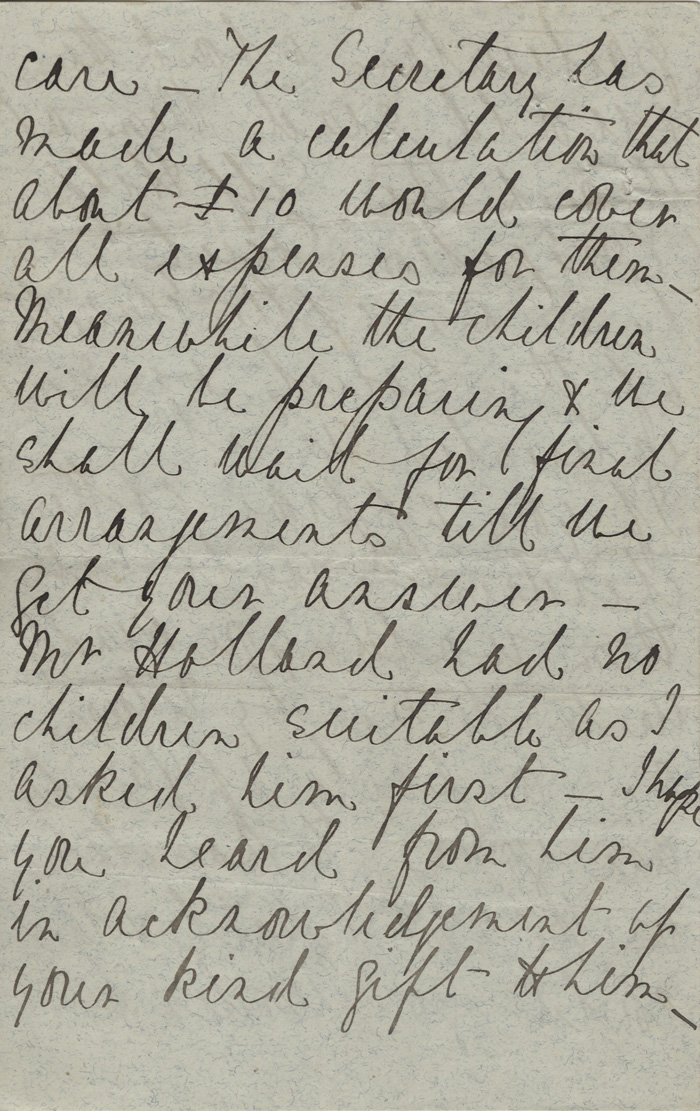 care – The Secretary has
made a calculation that
about £10 would cover
all expenses for them –
Meanwhile the children
will be preparing & we
shall wait for final
arrangements till we
get your answer –
Mr Holland had no
children suitable as I
asked him first – I hope
you heard from him
in acknowledgement of
your kind gift to him –